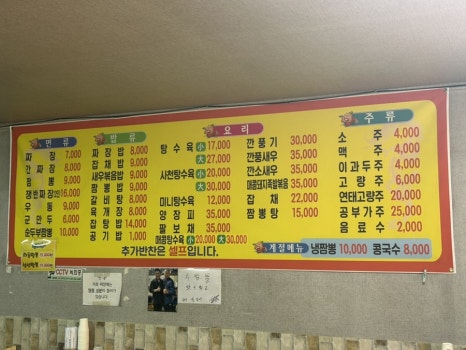 면 류
짜 장 7,000
간 짜 장 8,000
짬 뽕 9,000
쟁반짜장 16,000
우 동 9,000
군 만 두 6,000
순두부짬뽕 9,000
밥 류
짜 장 밥 8,000
잡 채 밥 9,000
새우볶음밥 9,000
짬 뽕 밥 9,000
갈 비 탕 8,000
육 개 장 8,000
잡 탕 밥 14,000
공 기 밥 1,000
요 리
탕 수 육 소 17,000
대 27,000
사천탕수육 소 20,000
대 30,000
미니탕수육 10,000
양 장 피 35,000
팔 보 채 35,000
매콤탕수육 소 20,000 대 30,000
깐 풍 기 30,000
깐풍새우 35,000
깐소새우 35,000
매콤돼지족발볶음 35,000
잡 채 22,000
짬 뽕 탕 15,000
주 류
소 주 4,000
맥 주 4,000
이과두주 4,000
고 량 주 6,000
연태고량주 20,000
공부가주 25,000
음 료 수 2,000
계절메뉴 냉짬뽕 10,000 콩국수 8,000
추가반찬은 셀프입니다.
CCTV 녹화중